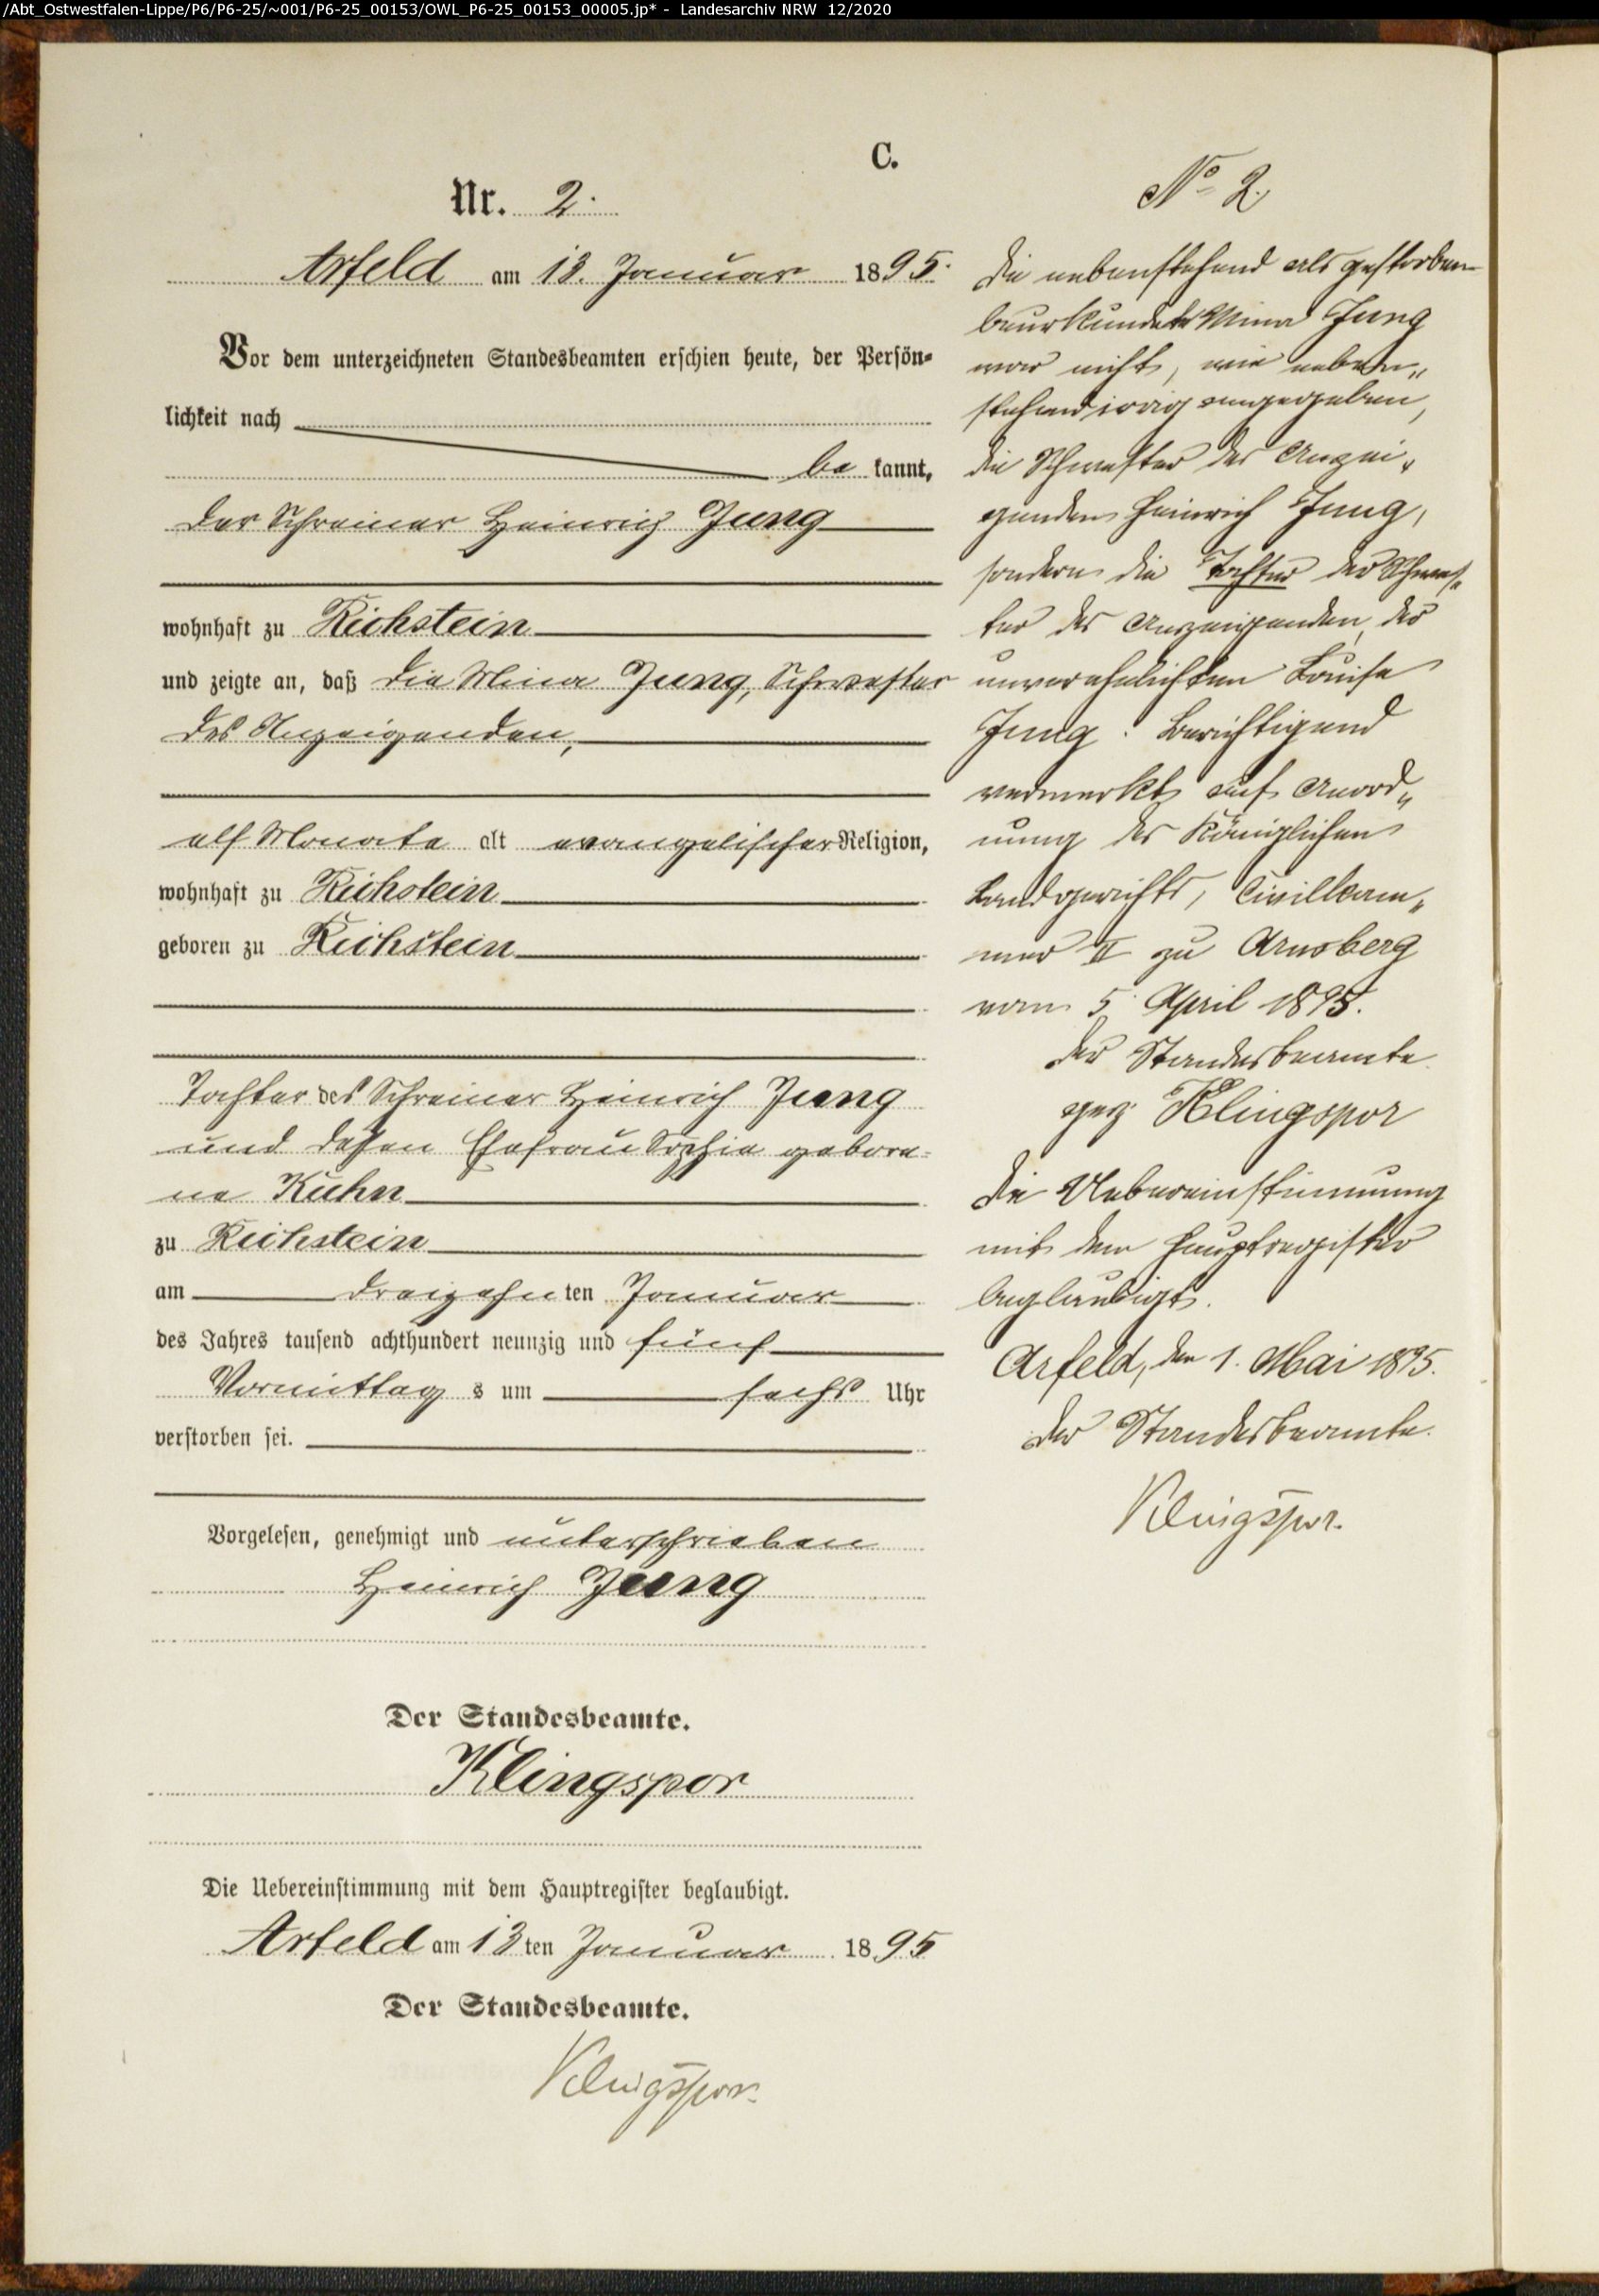 /Abt_Ostwestfalen-Lippe/P6/P6-25/~001/P6-25_00153/OWL_P6-25_00153_00005.jp* - Landesarchiv NRW 12/2020
C.
Nr. 2.
Arfeld am 13. Januar 1895.
Vor dem unterzeichneten Standesbeamten erschien heute, der Persön-
lichkeit nach
be kannt,
der Schreiner Heinrich Jung
wohnhaft zu Richstein
und zeigte an, daß die Mina Jung, Schwester
des Anzeigenden,
elf Monate alt evangelischer Religion,
wohnhaft zu Richstein
geboren zu Richstein
Tochter des Schreiner Heinrich Jung
und dessen Ehefrau Sophie gebore-
ne Kuhn
zu Richstein
am dreizehn ten Januar
des Jahres tausend achthundert neunzig und fünf
Vormittag s um sechs Uhr
verstorben sei.
Vorgelesen, genehmigt und unterschrieben
Heinrich Jung
Der Standesbeamte.
Klingspor
Die Uebereinstimmung mit dem Hauptregister beglaubigt.
Arfeld am 13 ten Januar 1895
Der Standesbeamte.
Klingspor.
No 2.
Die nebenstehend als gestorben
beurkundete Mina Jung
war nicht, wie neben„
stehend irrig angegeben,
die Schwester des Anzei„
genden Heinrich Jung,
sondern die Tochter der Schwes„
ter des Anzeigenden, der
unverehelichten Louise
Jung. Berichtigend
vermerkt auf Anord„
nung des Königlichen
Landgerichts, Civilkam„
mer II zu Arnsberg
vom 5. April 1895.
Der Standesbeamte.
gez. Klingspor
Die Uebereinstimmung
mit dem Hauptregister
beglaubigt.
Arfeld, den 1. Mai 1895.
Der Standesbeamte.
Klingspor.